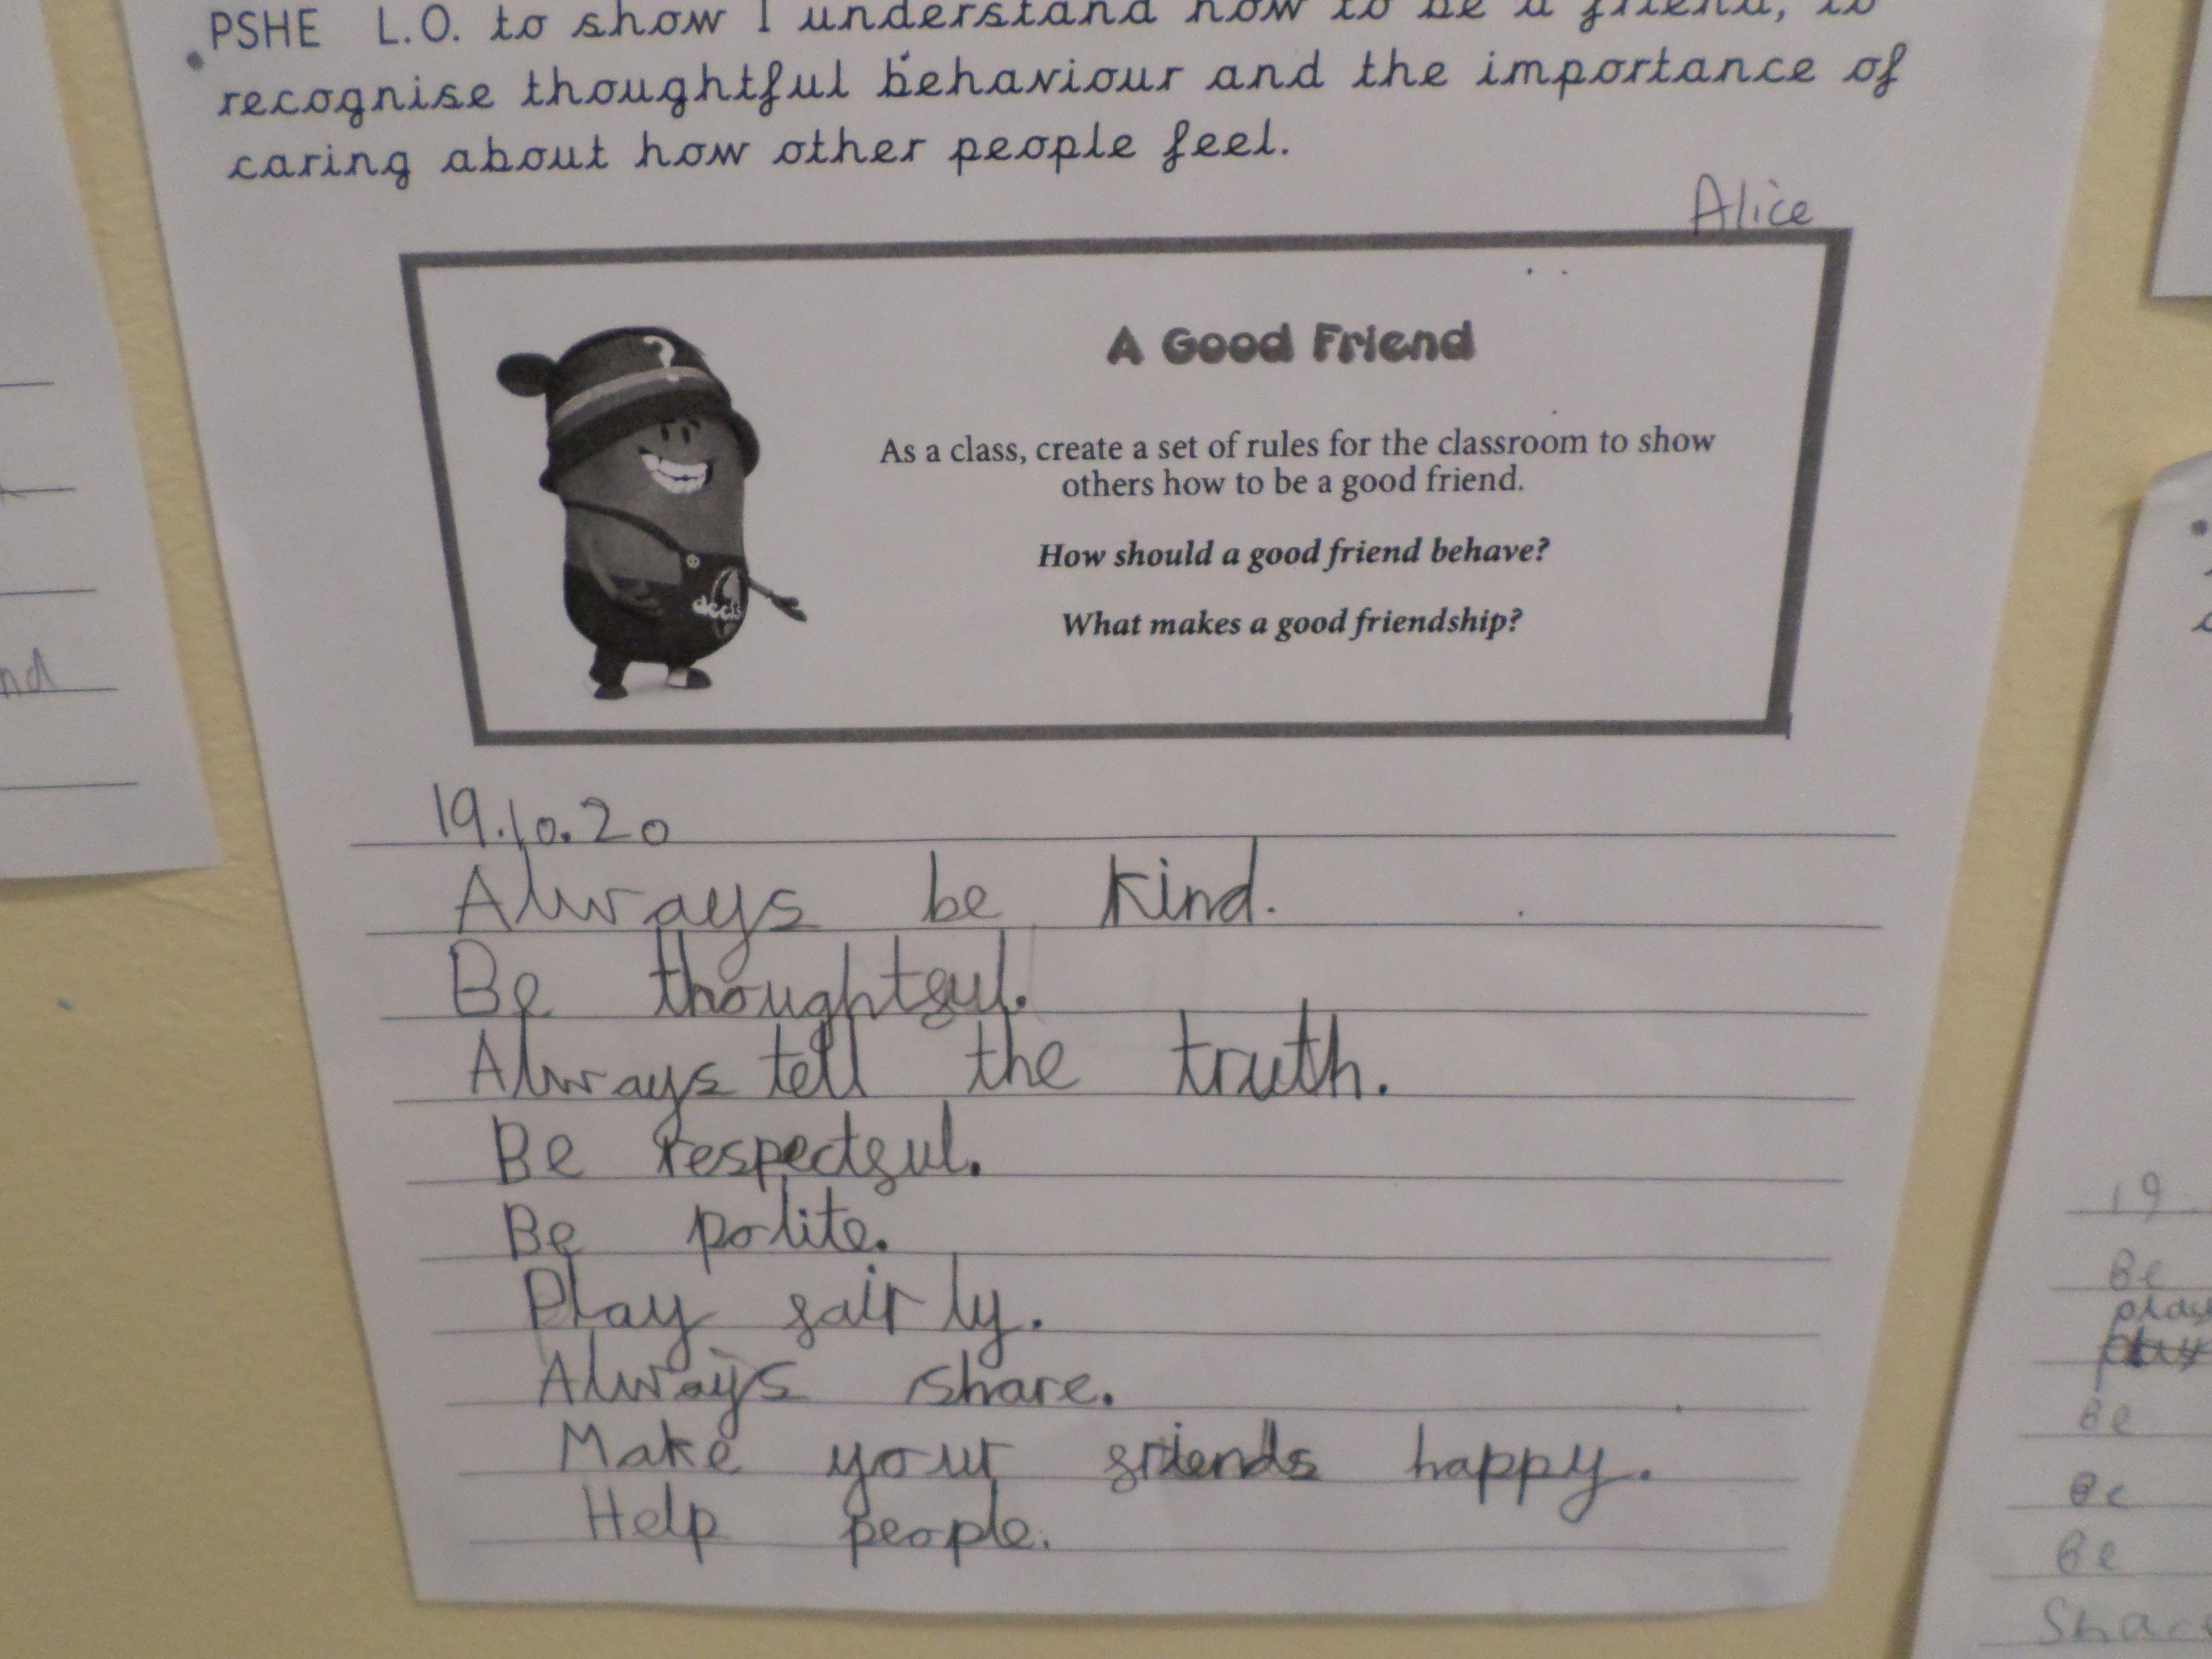 PSHE L.O. to show I understand how to be a friend, to
recognise thoughtful behaviour and the importance of
caring about how other people feel.
Alice
?
A Good Friend
As a class, create a set of rules for the classroom to show
others how to be a good friend.
How should a good friend behave?
What makes a good friendship?
decis
19.10.20
Always be kind.
Be thoughtful.
Always tell the truth.
Be respectful.
Be polite.
Play fairly.
Always share.
Make your friends happy.
Help people.
nd
19.
Be
play
Be
Be
Be
Share